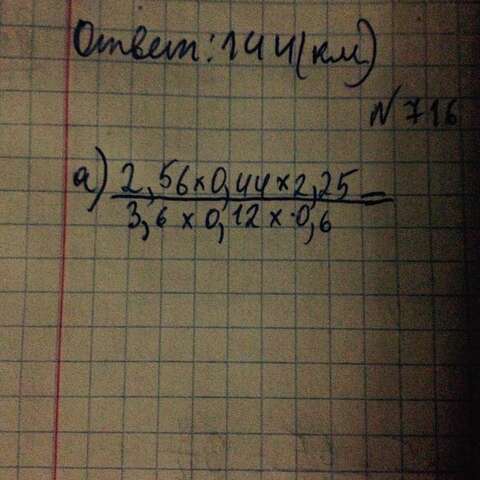 Ответ: 144(км)
№716
а) 2,56×0,44×2,25=
3,6×0,12×0,6